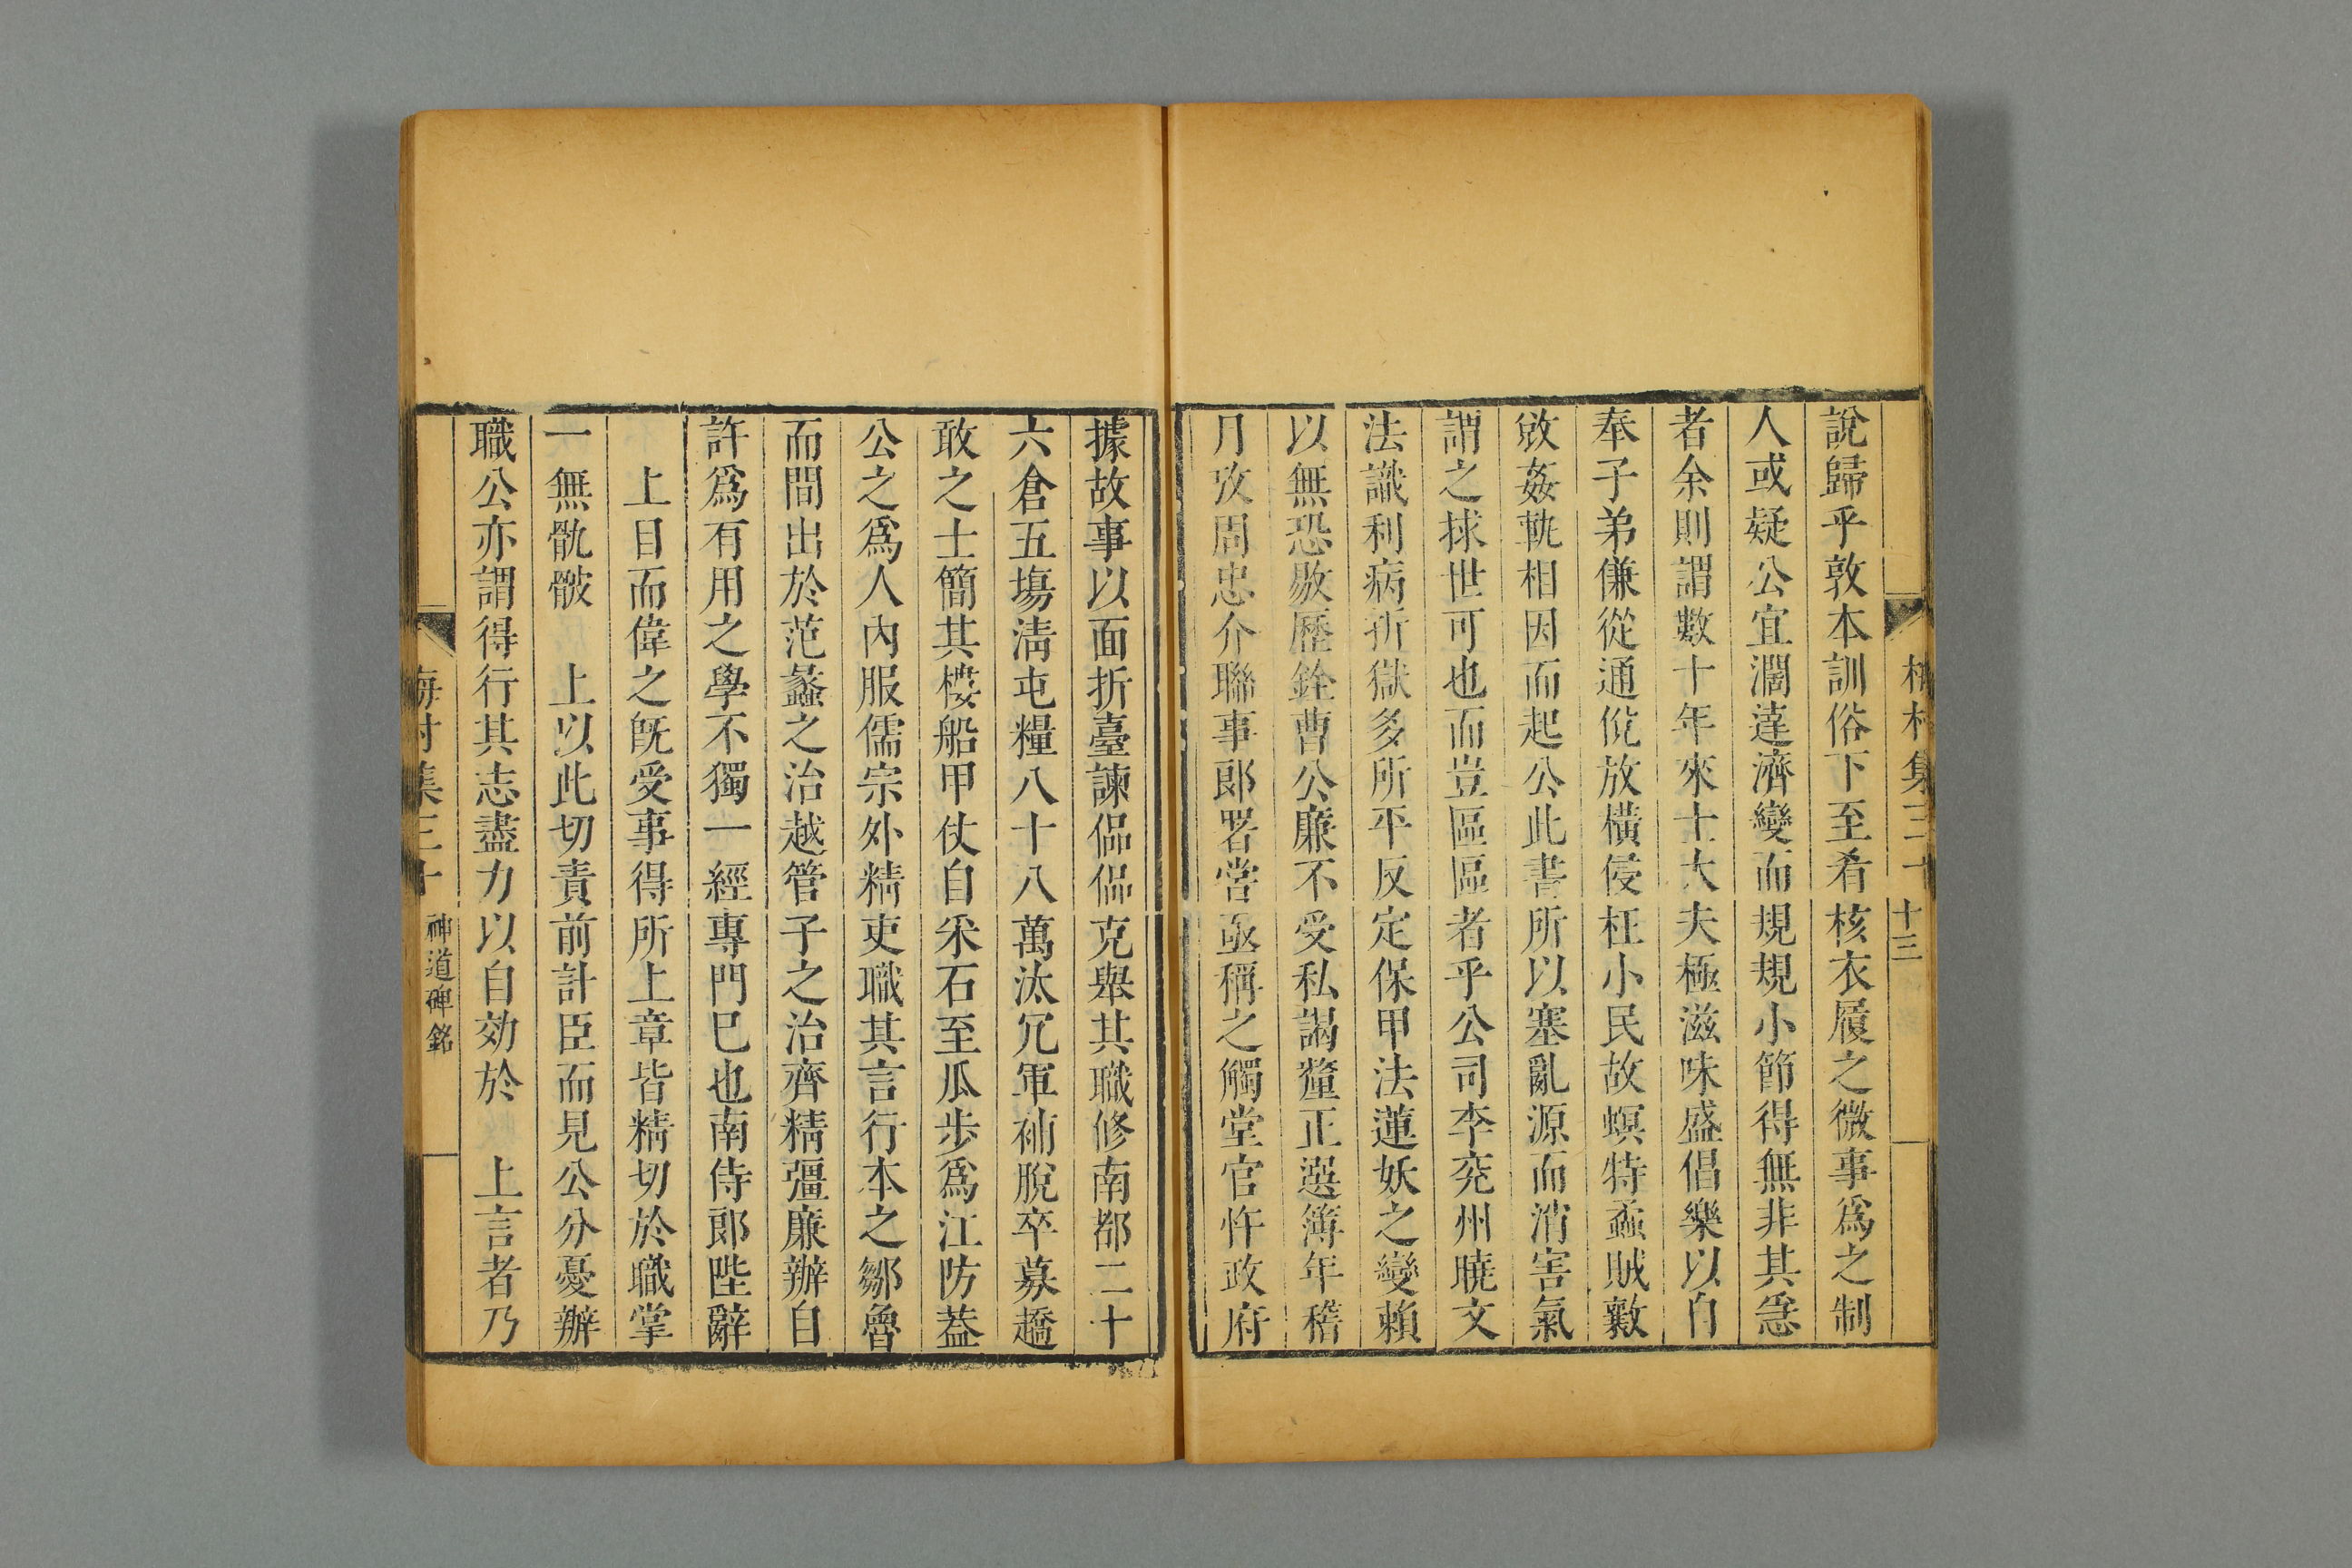 梅村集三十
十三
說歸乎敦本訓俗下至肴核衣履之微事爲之制
人或疑公宜濶達濟變而規規小節得無非其急
者余則謂數十年來士大夫極滋味盛倡樂以自
奉子弟傔從通侻放橫侵枉小民故螟特蟊賊斁
敚姦軌相因而起公此書所以塞亂源而消害氣
謂之捄世可也而豈區區者乎公司李兖州曉文
法識利病折獄多所平反定保甲法蓮妖之變賴
以無恐敭歷銓曹公廉不受私謁釐正選簿年稽
月攷周忠介聯事郎署嘗亟稱之觸堂官忤政府
據故事以面折臺諫偘偘克舉其職修南都二十
六倉五塲淸屯糧八十八萬汰冗軍補脫卒募趫
敢之士簡其樓船甲仗自采石至瓜步爲江防葢
公之爲人內服儒宗外精吏職其言行本之鄒魯
而間出於范蠡之治越管子之治齊精彊廉辦自
許爲有用之學不獨一經專門巳也南侍郎陛辭
上目而偉之旣受事得所上章皆精切於職掌
一無骩骳　上以此切責前計臣而見公分憂辦
職公亦謂得行其志盡力以自効於　上言者乃
梅村集三十
神道碑銘